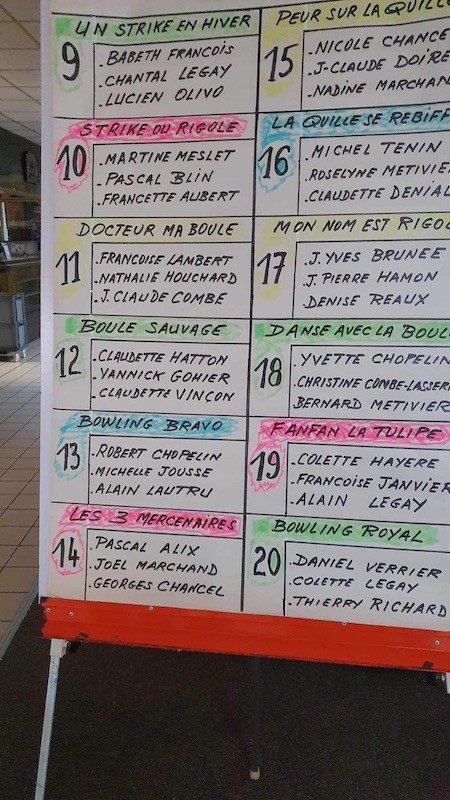 UN STRIKE EN HIVER
9
.BABETH FRANCOIS
.CHANTAL LEGAY
.LUCIEN OLIVO
STRIKE OU RIGOLE
10
.MARTINE MESLET
.PASCAL BLIN
.FRANCETTE AUBERT
DOCTEUR MA BOULE
11
.FRANCOISE LAMBERT
.NATHALIE HOUCHARD
.J.CLAUDE COMBE
BOULE SAUVAGE
12
.CLAUDETTE HATTON
.YANNICK GOHIER
.CLAUDETTE VINÇON
BOWLING BRAVO
13
.ROBERT CHOPELIN
.MICHELLE JOUSSE
.ALAIN LAUTRU
LES 3 MERCENAIRES
14
.PASCAL ALIX
.JOEL MARCHAND
.GEORGES CHANCEL
PEUR SUR LA QUILL
15
.NICOLE CHANCE
.J-CLAUDE DOIRE
.NADINE MARCHAN
LA QUILLE SE REBIFF
16
.MICHEL TENIN
.ROSELYNE METIVIE
.CLAUDETTE DENIAL
MON NOM EST RIGO
17
.J.YVES BRUNEE
.J.PIERRE HAMON
.DENISE REAUX
DANSE AVEC LA BOUL
18
.YVETTE CHOPELIN
.CHRISTINE COMBE-LASSER
BERNARD METIVIER
FANFAN LA TULIPE
19
.COLETTE HAYERE
.FRANCOISE JANVIER
.ALAIN LEGAY
BOWLING ROYAL
20
.DANIEL VERRIER
.COLETTE LEGAY
.THIERRY RICHARD